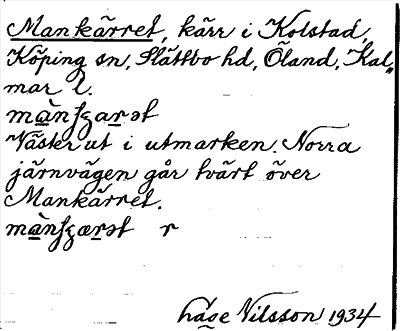 Mankärret, kärr i Kolstad,
Köping sn, Slättbo hd, Öland, Kal-
mar l.
Väster ut i utmarken. Norra
järnvägen går tvärt över
Mankärret.
r
Nilsson 1934